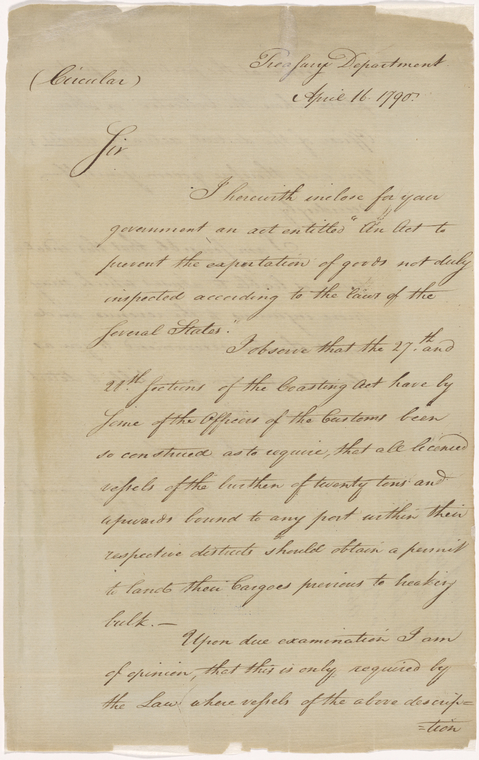 (Circular)
Treasury Department
April 16 1790.
Sir
I herewith inclose for your
government an act entitled "An Act to
prevent the exportation of goods not duly
inspected according to the laws of the
several States."
I observe that the 27.th and
28.th sections of the Coasting Act have by
some of the Officers of the Customs been
so construed as to require, that all licenced
vessels of the burthen of twenty tons and
upwards bound to any port within their
respective districts should obtain a permit
to land their Cargoes previous to breaking
bulk.—
Upon due examination I am
of opinion, that this is only required by
the Law where vessels of the above descrip=
=tion